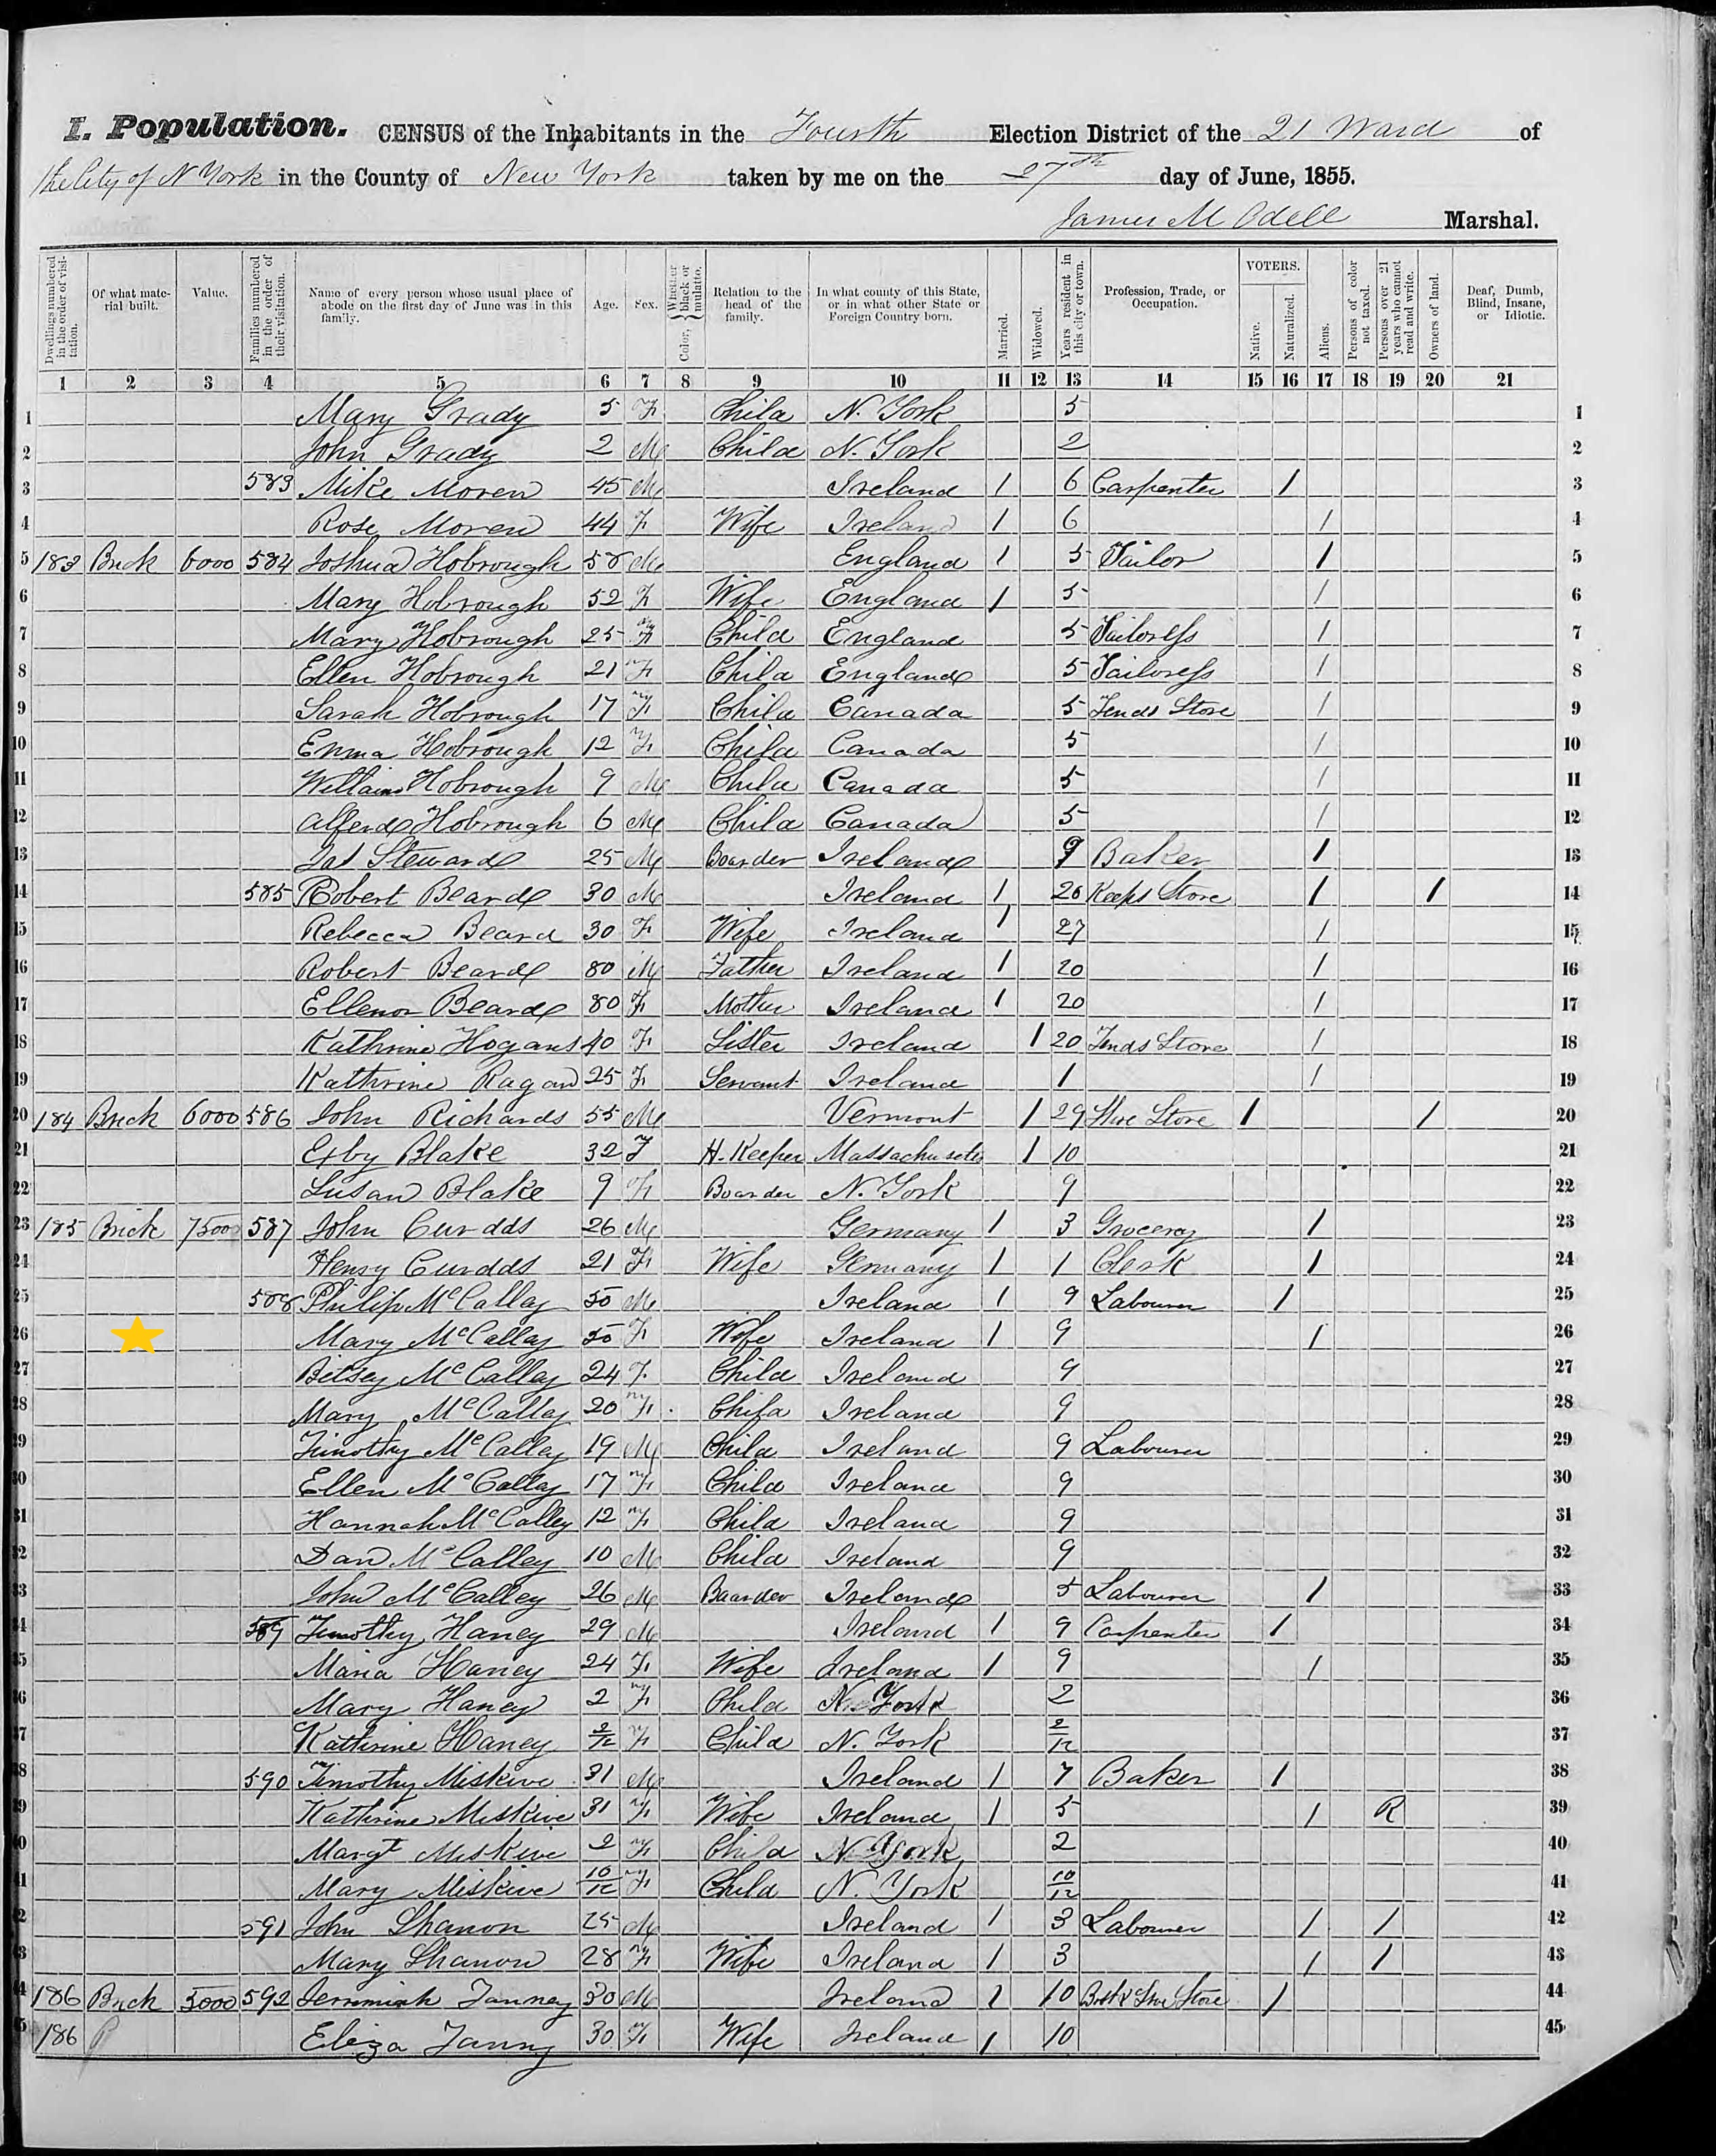 I. Population. CENSUS of the Inhabitants in the Fourth Election District of the 21 Ward of
the City of N York in the County of New York taken by me on the 27th day of June, 1855.
James M Odell Marshal.
Dwellings numbered in the order of visitation. Of what material built. Value. Families numbered in the order of their visitation. Name of every person whose usual place of abode on the first day of June was in this family. Age. Sex. Color, Whether black or mulatto. Relation to the head of the family. In what county of this State, or in what other State or Foreign Country born. Married. Widowed. Years resident in this city or town. Profession, Trade, or Occupation. VOTERS. Native. Naturalized. Aliens. Persons of color not taxed. Persons over 21 years who cannot read and write. Owners of land. Deaf, Dumb, Blind, Insane, or Idiotic.
1 2 3 4 5 6 7 8 9 10 11 12 13 14 15 16 17 18 19 20 21
1 Mary Grady 5 F Child N. York 5 1
2 John Grady 2 M Child N. York 2 2
3 583 Mike Moren 45 M Ireland 1 6 Carpenter 1 3
4 Rose Moren 44 F Wife Ireland 1 6 1 4
5 183 Brick 6000 584 Joshua Hobrough 58 M England 1 5 Tailor 1 5
6 Mary Hobrough 52 F Wife England 1 5 1 6
7 Mary Hobrough 25 F Child England 5 Tailoress 1 7
8 Ellen Hobrough 21 F Child England 5 Tailoress 1 8
9 Sarah Hobrough 17 F Child Canada 5 Tends Store 1 9
10 Emma Hobrough 12 F Child Canada 5 1 10
11 William Hobrough 9 M Child Canada 5 1 11
12 Alferd Hobrough 6 M Child Canada 5 1 12
13 Jas Steward 25 M Boarder Ireland 9 Baker 1 13
14 585 Robert Beard 30 M Ireland 1 20 Keeps Store 1 1 14
15 Rebecca Beard 30 F Wife Ireland 1 27 1 15
16 Robert Beard 80 M Father Ireland 1 20 1 16
17 Ellenor Beard 80 F Mother Ireland 1 20 1 17
18 Kathrine Hogans 40 F Sister Ireland 1 20 Tends Store 1 18
19 Kathrine Ragan 25 F Servant Ireland 1 1 19
20 184 Brick 6000 586 John Richards 55 M Vermont 1 29 Store 1 1 20
21 Blake 32 F H. Keeper Massachusetts 1 10 21
22 Susan Blake 9 F Boarder N. York 9 22
23 185 Brick 7500 587 John Curdds 26 M Germany 1 3 Grocery 1 23
24 Henry Curdds 21 F Wife Germany 1 1 Clerk 1 24
25 588 Philip McCalley 50 M Ireland 1 9 Labourer 1 25
26 Mary McCalley 50 F Wife Ireland 1 9 1 26
27 Bitsey McCalley 24 F Child Ireland 9 27
28 Mary McCalley 20 F Child Ireland 9 28
29 Timothy McCalley 19 M Child Ireland 9 Labourer 29
30 Ellen McCalley 17 F Child Ireland 9 30
31 Hannah McCalley 12 F Child Ireland 9 31
32 Dan McCalley 10 M Child Ireland 9 32
33 John McCalley 26 M Boarder Ireland 5 Labourer 1 33
34 589 Timothy Haney 29 M Ireland 1 9 Carpenter 1 34
35 Maria Haney 24 F Wife Ireland 1 9 1 35
36 Mary Haney 2 F Child N. York 2 36
37 Kathrine Haney 2/12 F Child N. York 2/12 37
38 590 Timothy Miskive 31 M Ireland 1 7 Baker 1 38
39 Kathrine Miskive 31 F Wife Ireland 1 5 1 R 39
40 Margt Miskive 2 F Child N. York 2 40
41 Mary Miskive 10/12 F Child N. York 10/12 41
42 591 John Shanon 25 M Ireland 1 3 Labourer 1 1 42
43 Mary Shanon 28 F Wife Ireland 1 3 1 1 43
44 186 Brick 5000 592 Jerimiah Tanney 30 M Ireland 1 10 Boot & Shoe Store 1 44
45 186 B Eliza Tanny 30 F Wife Ireland 1 10 45